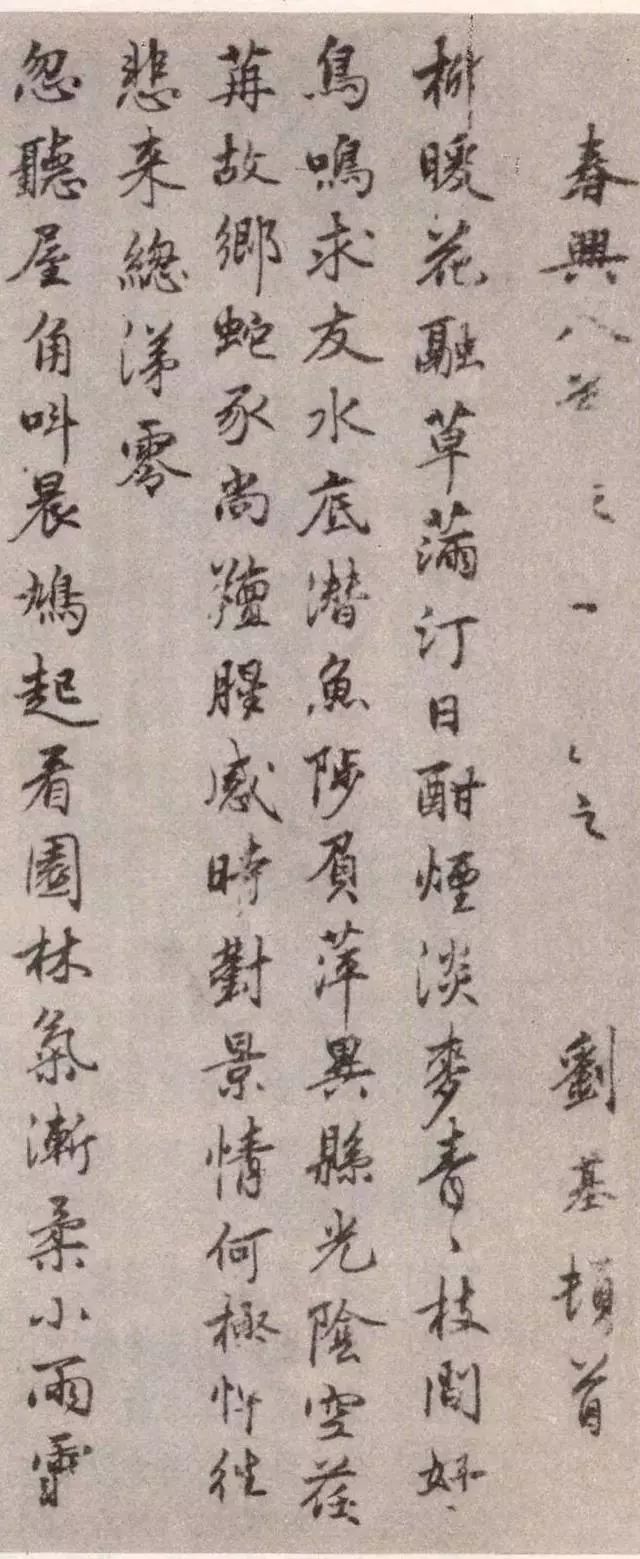 春興八首 劉基頓首
柳暖花融草滿汀日酣煙淡麥青〻枝間好
鳥鳴求友水底潛魚陟負萍異縣光陰空荏
苒故鄉蛇豕尚羶腥感時對景情何極忭往
悲来總涕零
忽聽屋角叫晨鳩起看園林氣漸柔小雨霽